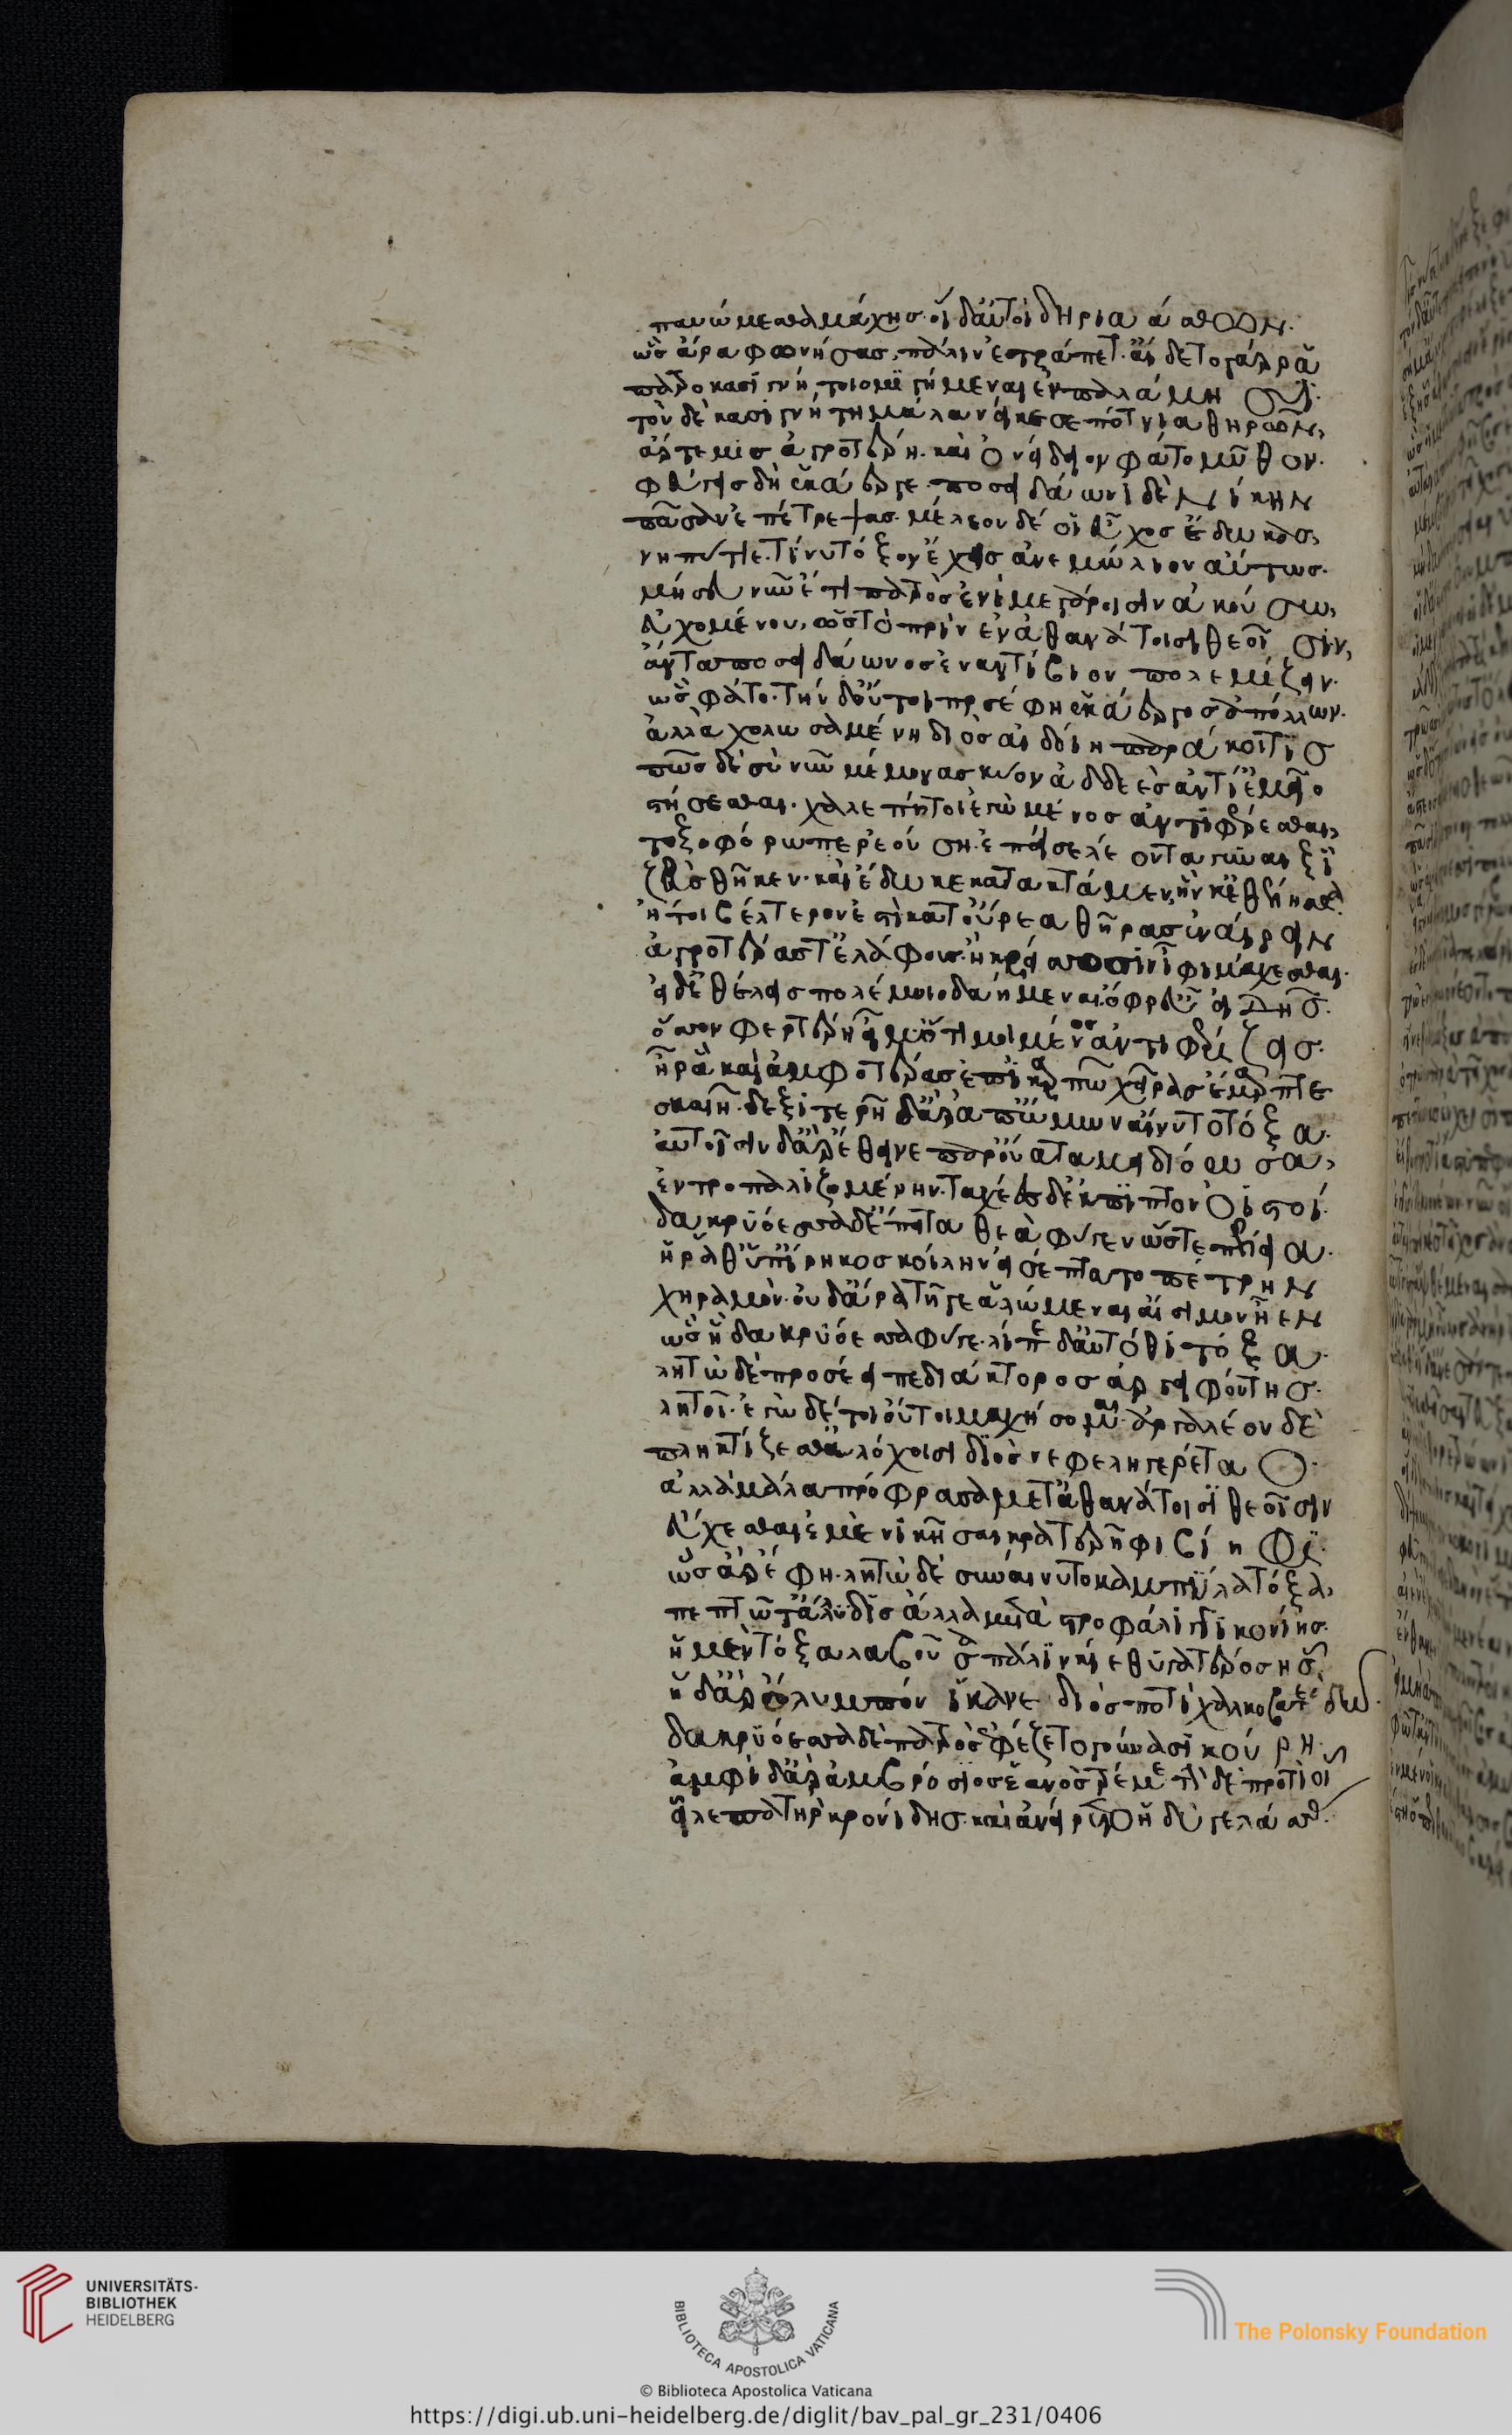 παυώμεσθα μάχης· οἱ δ' αὐτοὶ δηριαάσθων.
ὣς ἄρα φωνήσας, πάλιν ἐτράπετ'· αἴδετο γάρ ῥα
πατροκασιγνήτοιο μιγήμεναι ἐν παλάμῃσι.
τὸν δὲ κασιγνήτη μάλα νείκεσε πότνια θηρῶν,
ἄρτεμις ἀγροτέρη. καὶ ὀνείδειον φάτο μῦθον.
φεύγεις δὴ ἑκάεργε. ποσειδάωνι δὲ νίκην
πᾶσαν ἐπέτρεψας. μέλεον δέ οἱ εὖχος ἔδωκας,
νηπύτιε. τί νυ τόξον ἔχεις ἀνεμώλιον αὔτως.
μή σευ νῦν ἔτι πατρὸς ἐνὶ μεγάροισιν ἀκούσω,
εὐχομένου, ὡς τὸ πρὶν ἐν ἀθανάτοισι θεοῖσιν,
ἄντα ποσειδάωνος ἐναντίβιον πολεμίζειν.
ὣς φάτο. τὴν δ' οὔτοι προσέφη ἑκάεργος ἀπόλλων.
ἀλλὰ χολωσαμένη διὸς αἰδοίη παράκοιτις
πῶς δὲ σὺ νῦν μέμονας κύον ἀδδεὲς ἀντί' ἐμεῖο
στήσεσθαι. χαλεπή τοι ἐγὼ μένος ἀντιφέρεσθαι,
τοξοφόρω περ ἐούση. ἐπεὶ σε λέοντα γυναιξὶ
ζεὺς θῆκεν. καὶ ἔδωκε κατακτάμεν, ἥν κ' ἐθέλησθα.
ἤτοι βέλτερον ἐστὶ κατ' οὔρεα θῆρας ἐναίρειν
ἀγροτέρας τ' ἐλάφους. ἢ κρείσσοσιν ἶφι μάχεσθαι.
εἰ δ' ἐθέλεις πολέμοιο δαήμεναι. ὄφρ' εὖ εἰδῇς.
ὅσσον φερτέρη εἴμ' ὅτι μοι μένος ἀντιφερίζεις.
ἦ ῥα καὶ ἀμφοτέρας ἐπὶ καρπῶ χεῖρας ἔμαρπτε
σκαιῇ. δεξιτερῇ δ' ἄρ' ἀπ' ὤμων αἴνυτο τόξα.
αὐτοῖσιν δ' ἄρ' ἔθεινε παρ' οὔατα μειδιόωσα,
ἐντροπαλιζομένην. ταχέες δ' ἔκπιπτον ὀϊστοί.
δακρυόεσσα δ' ἔπειτα θεὰ φύγεν ὥστε πέλεια.
ἥ ῥά θ' ὑπ' ἴρηκος κοίλην εἰσέπτατο πέτρην
χηραμόν. οὐδ' ἄρα τῇ γε ἁλώμεναι αἴσιμον ἦεν
ὣς ἣ δακρυόεσσα φύγε. λίπε δ' αὐτόθι τόξα.
λητὼ δὲ προσέειπε διάκτορος ἀργειφόντης.
λητοῖ. ἐγὼ δέ τοι οὔτοι μαχήσομαι. ἀργαλέον δὲ
πληκτίζεσθ' ἀλόχοισι διὸς νεφεληγερέταο.
ἀλλὰ μάλα πρόφρασσα μετ' ἀθανάτοισι θεοῖσιν
εὔχεσθαι ἐμὲ νικῆσαι κρατερῆφι βίηφι.
ὣς ἄρ' ἔφη. λητὼ δὲ συναίνυτο καμπύλα τόξα,
πεπτῶτ' ἄλλυδις ἄλλα μετὰ στροφάλιγγι κονίης.
ἣ μὲν τόξα λαβοῦσα πάλιν κίε θυγατέρος ἧς.
ἣ δ' ἄρ' ὄλυμπον ἵκανε διὸς ποτὶ χαλκοβατὲς δῶ.
δακρυόεσσα δὲ πατρὸς ἐφέζετο γούνασι κούρη.
ἀμφὶ δ' ἄρ' ἀμβρόσιος ἑανὸς τρέμε τὴν δὲ προτὶ οἷ
εἷλε πατὴρ κρονίδης. καὶ ἀνείρετο ἡδὺ γελάσσας.
UNIVERSITÄTS-
BIBLIOTHEK
HEIDELBERG
BIBLIOTECA APOSTOLICA VATICANA
The Polonsky Foundation
© Biblioteca Apostolica Vaticana
https://digi.ub.uni-heidelberg.de/diglit/bav_pal_gr_231/0406